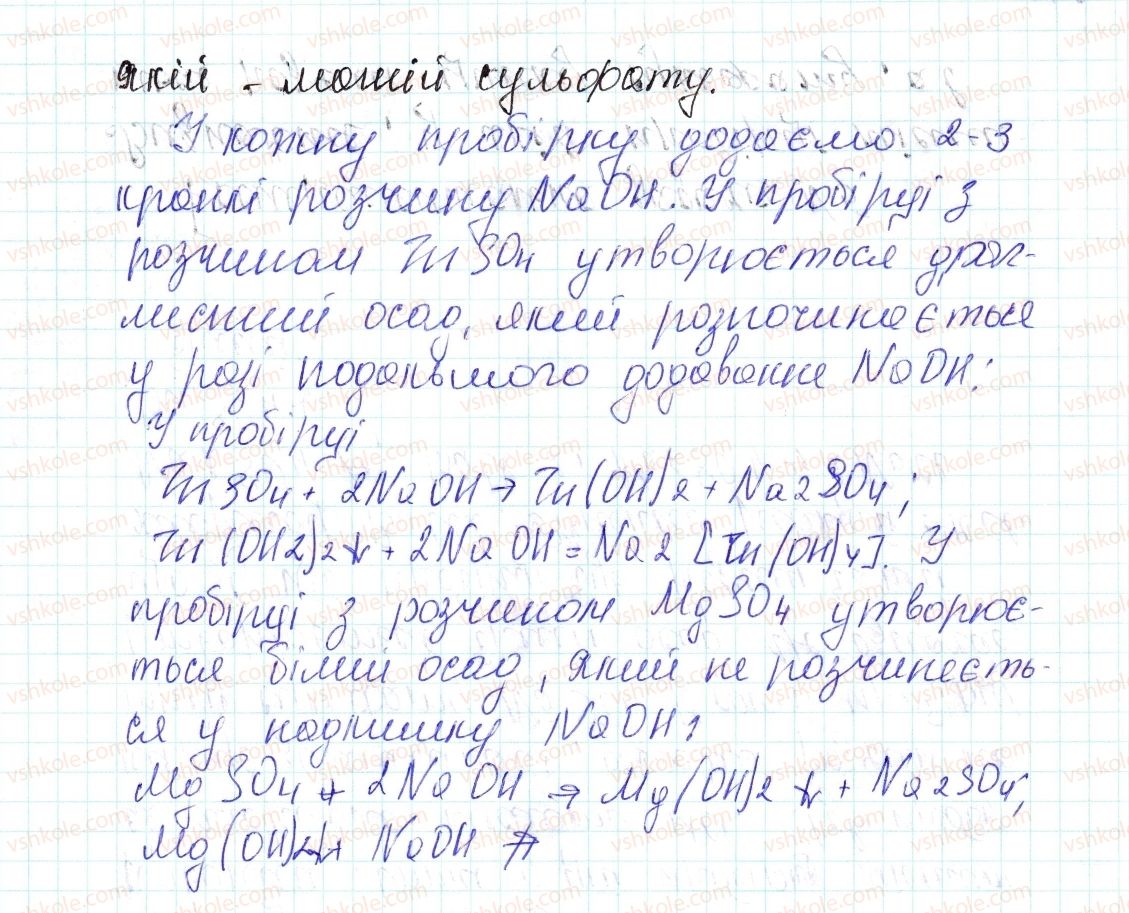 якій – магній сульфату.
У кожну пробірку додаємо 2-3
краплі розчину NaOH. У пробірці з
розчином ZnSO4 утворюється драг-
листий осад, який розпочинається
у разі подальшого додавання NaOH:
У пробірці
ZnSO4 + 2NaOH → Zn(OH)2 + Na2SO4;
Zn(OH2)2↓ + 2NaOH = Na2[Zn(OH)4]. У
пробірці з розчином MgSO4 утворює-
ться білий осад, який не розчинєєть-
ся у надлишку NaOH:
MgSO4 + 2NaOH → Mg(OH)2↓ + Na2SO4;
Mg(OH)2↓ + NaOH ↛